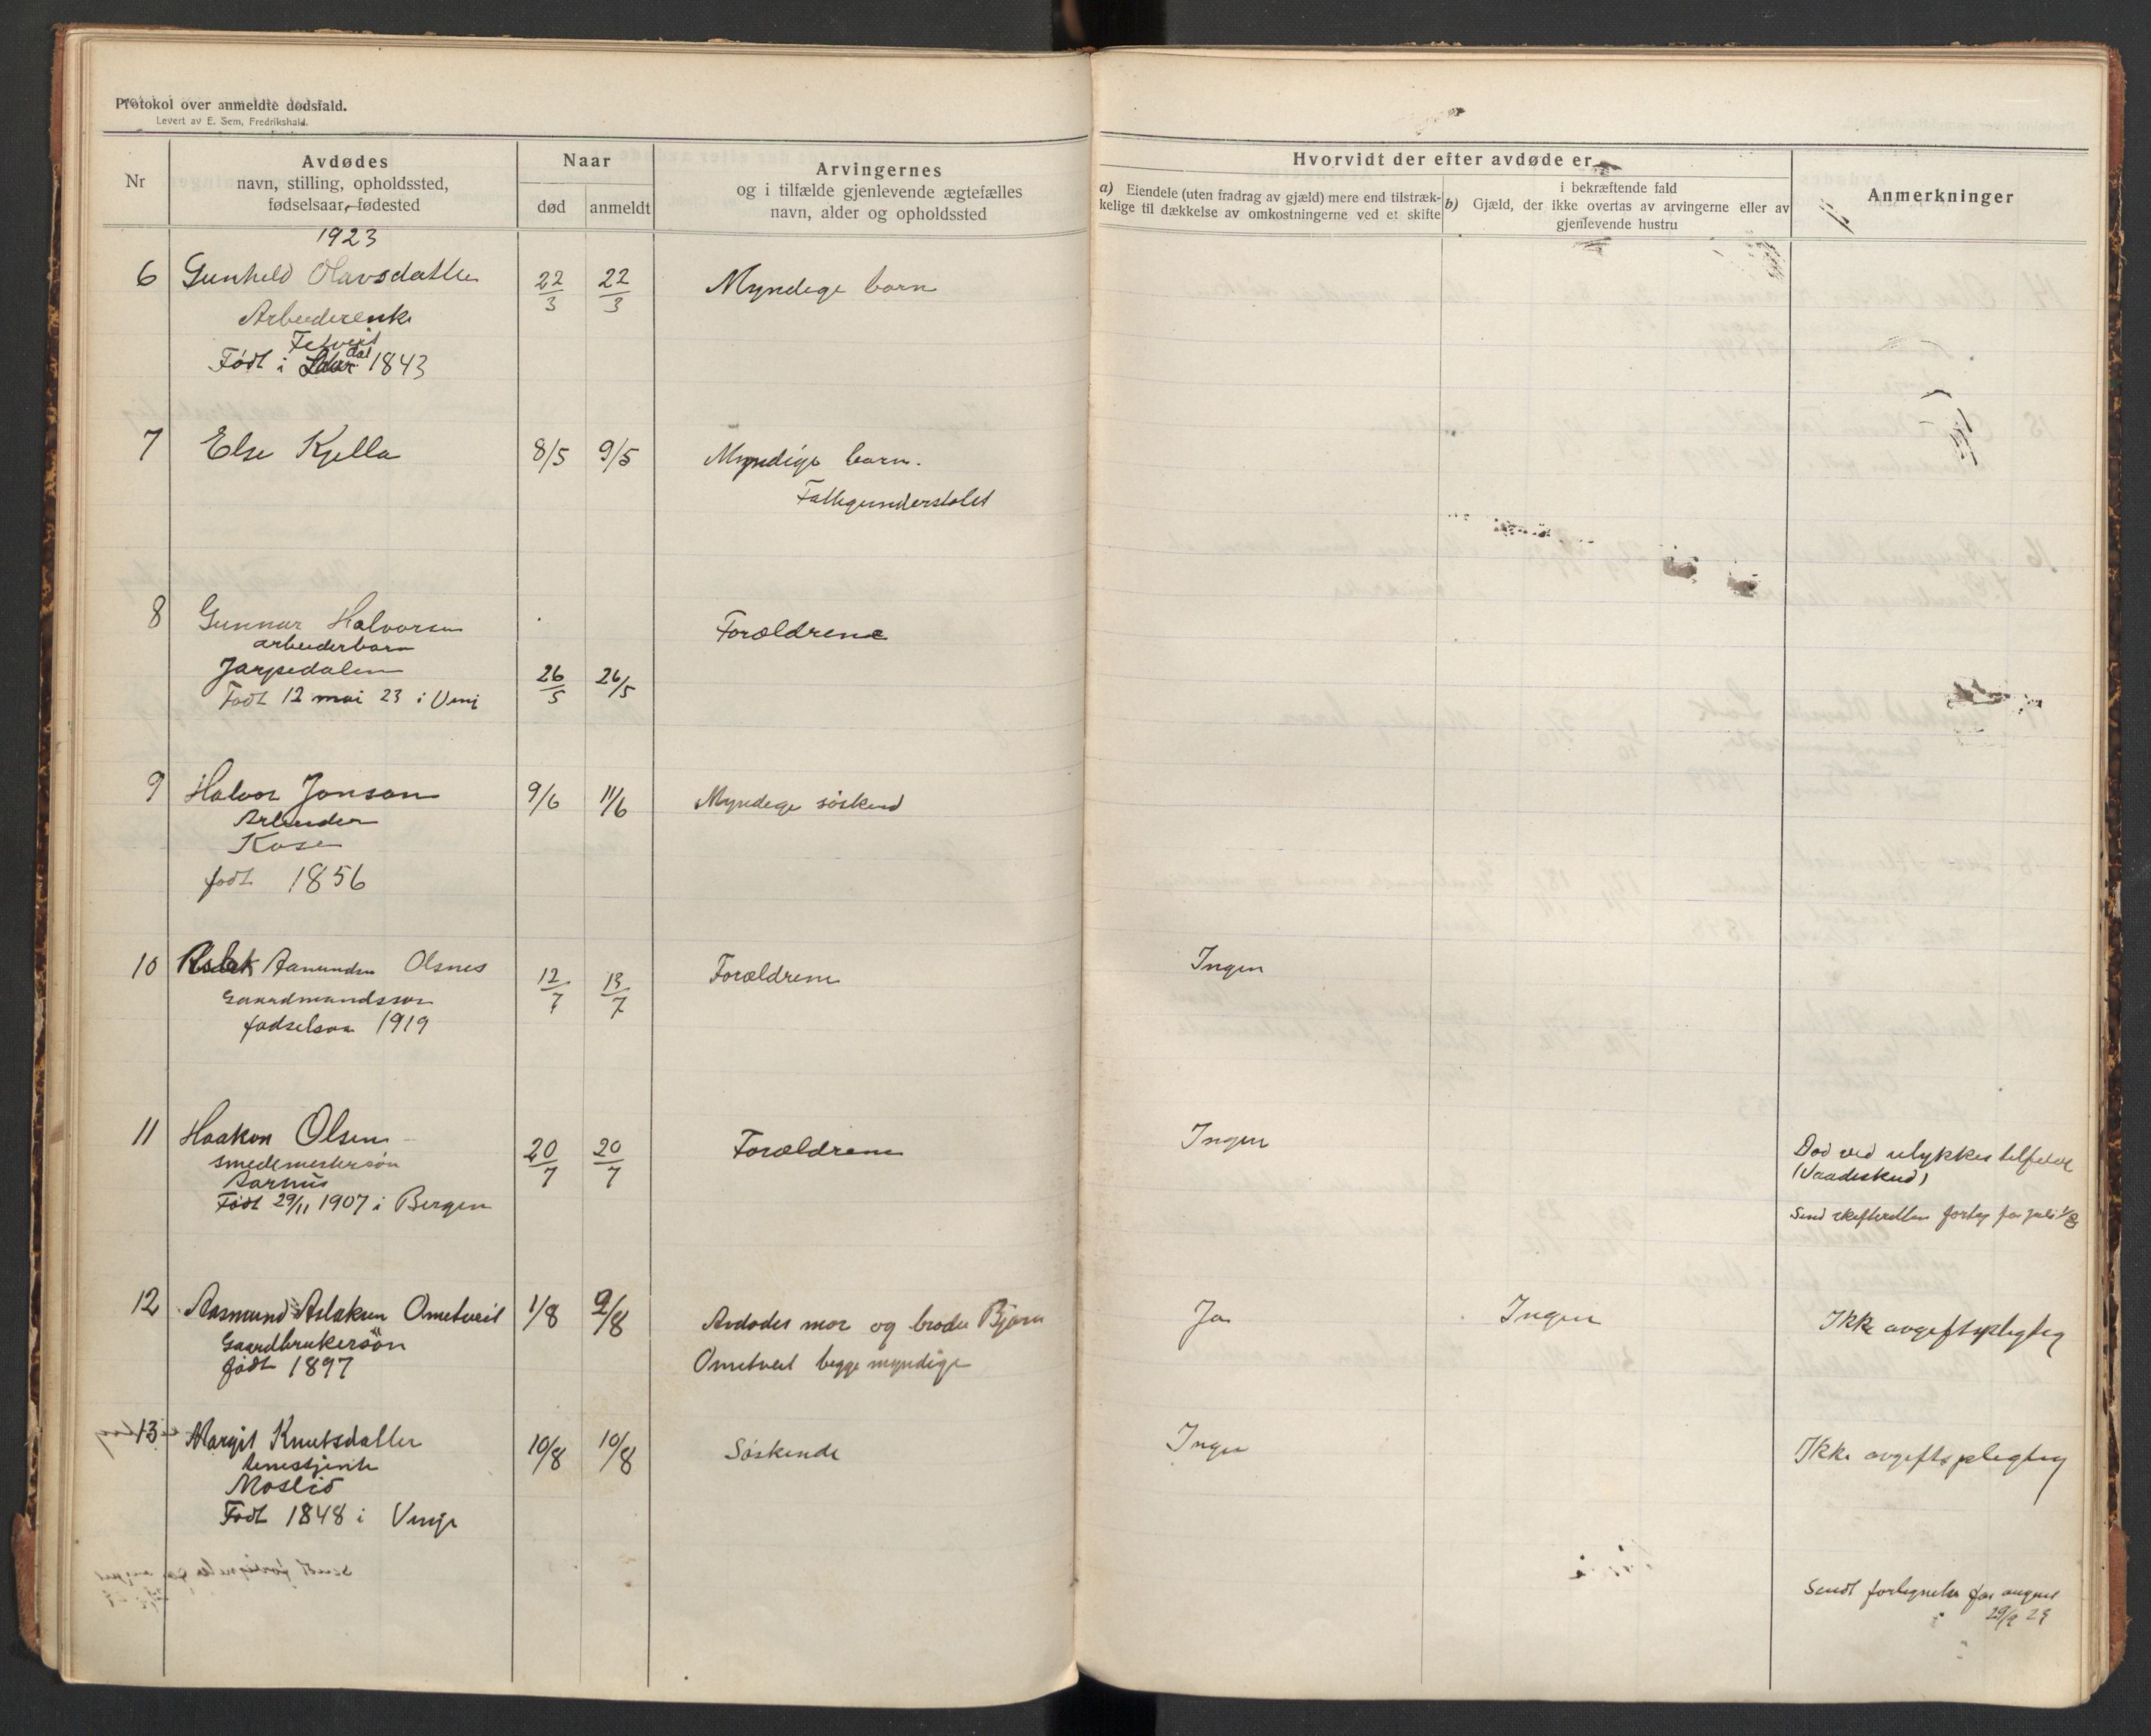 Protokol over anmeldte dødsfald.
Levert av E. Sem, Fredrikshald.
Nr
Avdødes
navn, stilling, opholdssted,
fødselsaar, fødested
Naar
død
anmeldt
Arvingernes
og i tilfælde gjenlevende ægtefælles
navn, alder og opholdssted
Hvorvidt der efter avdøde er
a) Eiendele (uten fradrag av gjæld) mere end tilstræk-
kelige til dækkelse av omkostningerne ved et skifte
i bekræftende fald
b) Gjæld, der ikke overtas av arvingerne eller av
gjenlevende hustru
Anmerkninger
1923
6 Gunhild Olavsdatter 22/3 22/3 Myndige barn
Arbeiderenke
Født i 1843
7 Else Kjella 8/5 9/5 Myndige barn.
Fattigunderstøtet
8 Gunnar Halvorsen Forældrene
arbeiderbarn
Jarpedalen 26/5 26/5
Født 12 mai 23 i Vinj
9 Halvor Jonson 9/6 11/6 Myndige søskend
Arbeider
født 1856
10 Aslak Aanundsen Olsnes 12/7 13/7 Forældrene Ingen
Gaardmandssøn
fødselsaar 1919
11 Haakon Olsen 20/7 20/7 Forældrene Ingen
smedemestersøn
Aarnus
Født 29/11 1907 i Bergen
Død ved ulykkestilfælde
(Vaadeskud)
Send skifteretten for juli 1/8
12 Aasmund Aslaksen Ometveit 1/8 9/8 Avdødes mor og broder Bjørn Ja Ingen Ikke avgiftspligtig
Gaardbrukersøn
født 1897
Ometveit begge myndige
13 Margit Knutsdatter 10/8 10/8 Søskende Ingen Ikke avgiftspligtig
tenestjente
Moslid
Født 1848 i Vinje
Sendt fortegnelse for august
29/9 23